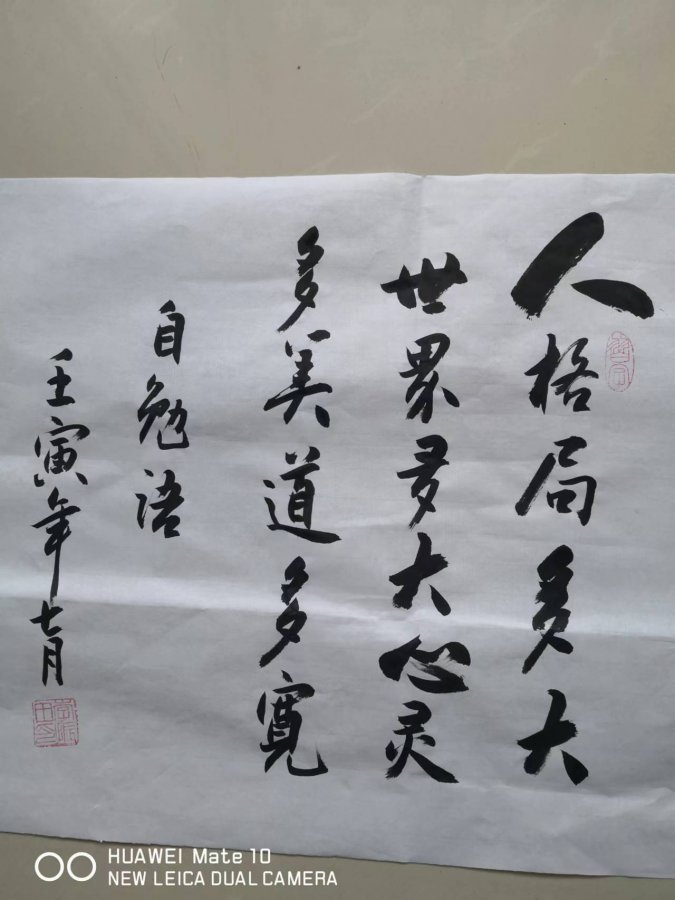 人格局多大
世界多大心灵
多美道多宽
自勉语
壬寅年七月
HUAWEI Mate 10
NEW LEICA DUAL CAMERA